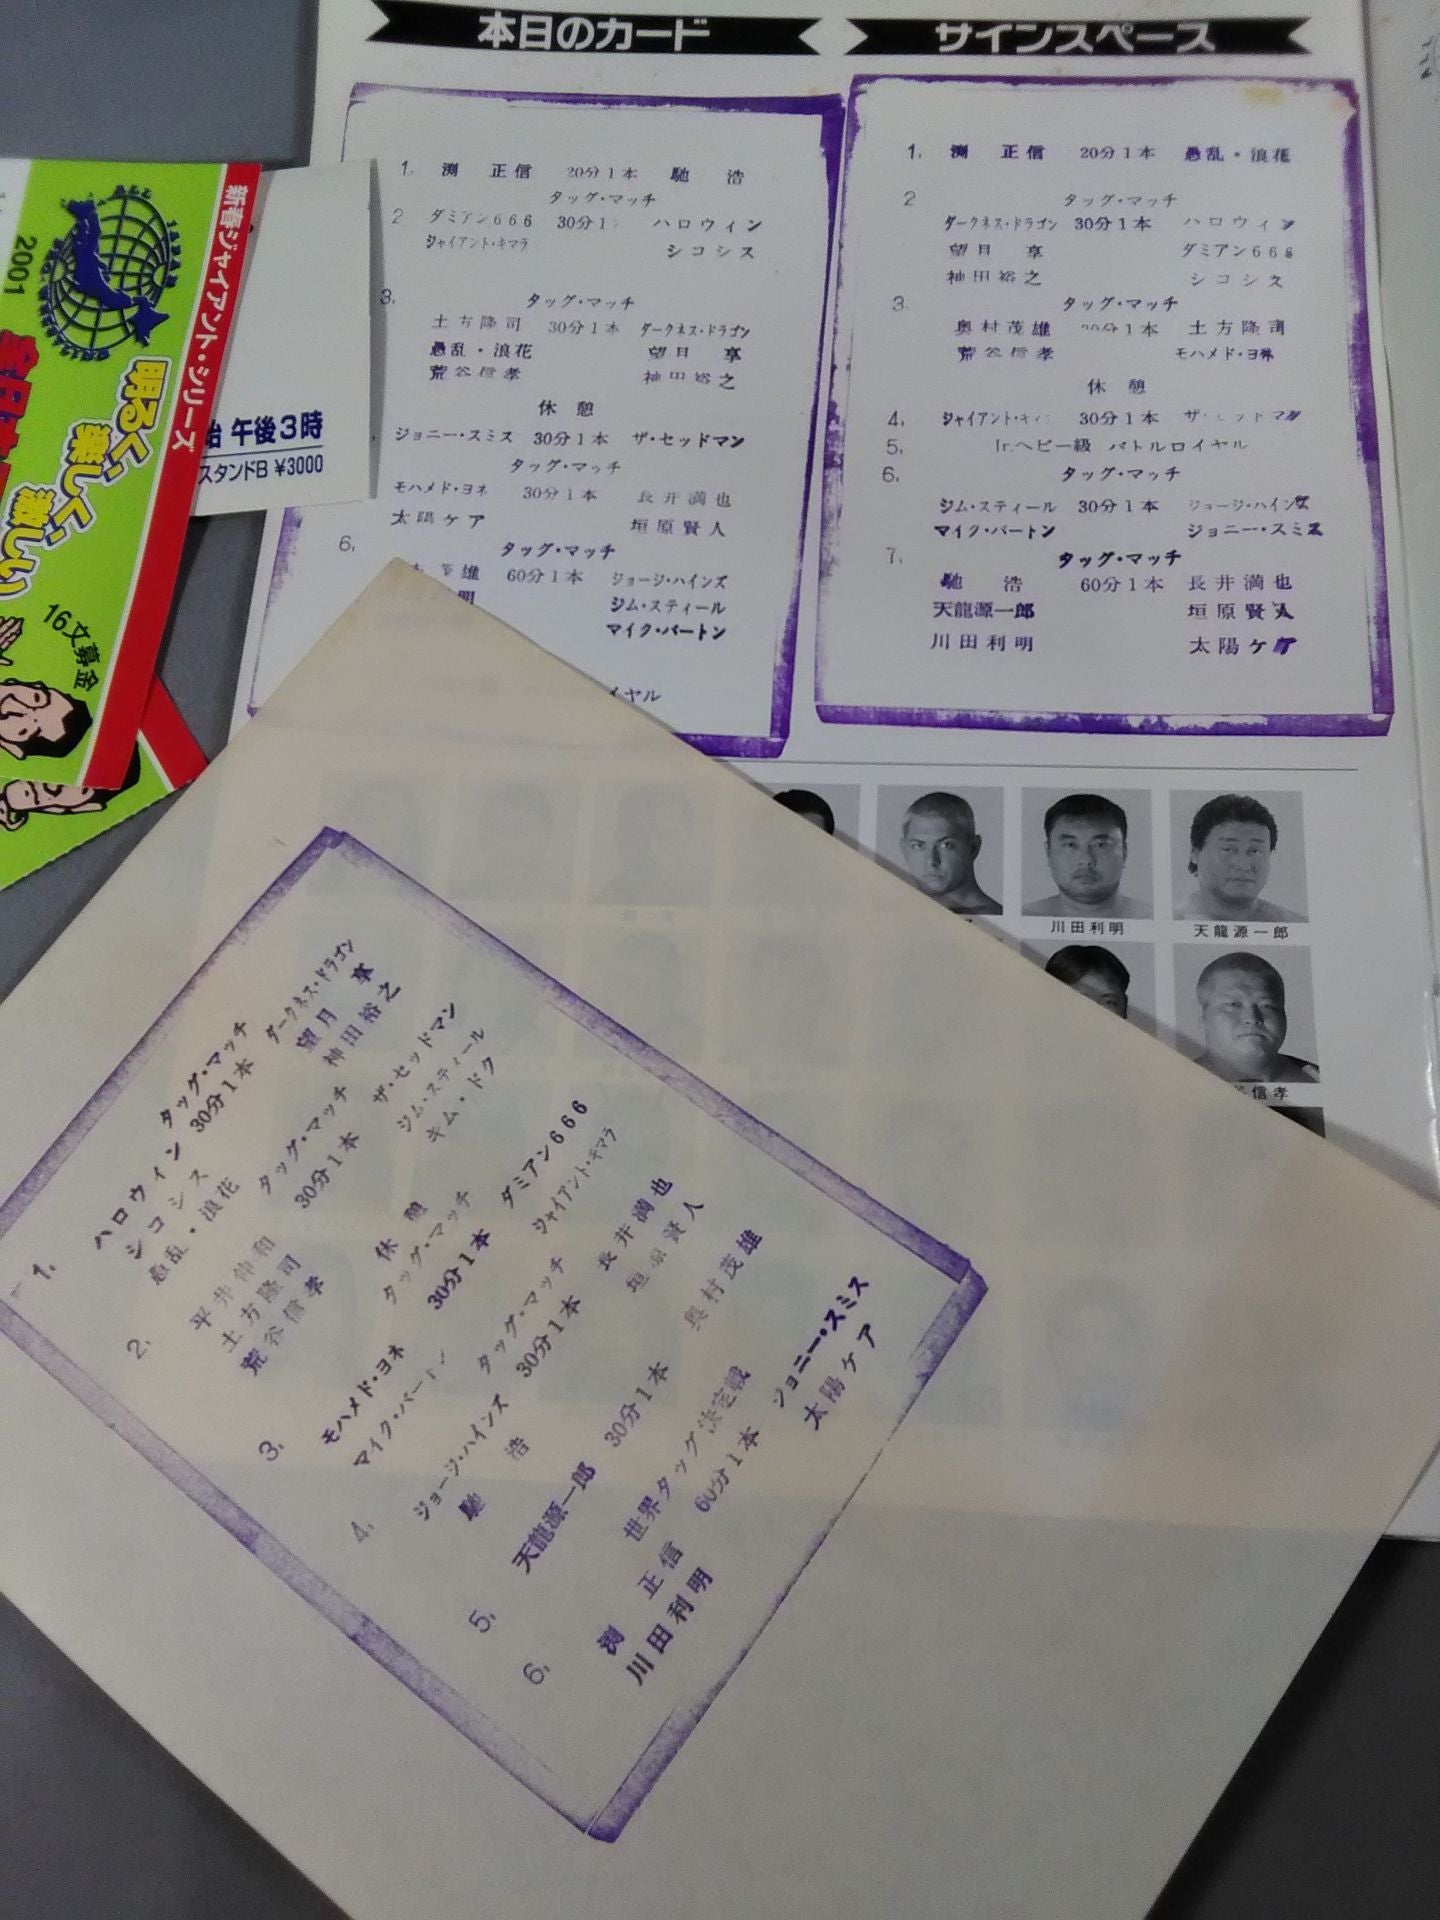 本日のカード
1. 渕 正信 20分1本 馳 浩
タッグ・マッチ
2 ダミアン666 30分1 ハロウィン
ジャイアント・キマラ シコシス
3. タッグ・マッチ
土方隆司 30分1本 ダークネス・ドラゴン
愚乱・浪花 望月 享
荒谷信孝 神田裕之
休憩
ジョニー・スミス 30分1本 ザ・セッドマン
タッグ・マッチ
モハメド・ヨネ 30分1本 長井満也
太陽ケア 垣原賢人
6. タッグ・マッチ
茂雄 60分1本 ジョージ・ハインズ
明 ジム・スティール
マイク・バートン
イヤル
サインスペース
1. 渕 正信 20分1本 愚乱・浪花
2 タッグ・マッチ
ダークネス・ドラゴン 30分1本 ハロウィン
望月 享 ダミアン666
神田裕之 シコシス
3. タッグ・マッチ
奥村茂雄 分1本 土方隆司
荒谷信孝 モハメド・ヨネ
休憩
4. ジャイアント・キ 30分1本 ザ・セッドマン
5. Jr.ヘビー級 バトルロイヤル
6. タッグ・マッチ
ジム・スティール 30分1本 ジョージ・ハインズ
マイク・バートン ジョニー・スミス
7. タッグ・マッチ
馳 浩 60分1本 長井満也
天龍源一郎 垣原賢人
川田利明 太陽ケア
新春ジャイアント・シリーズ
JAPAN
2001
明るく、
楽しく、
激しい
全日本
16文募金
始 午後3時
スタンドB ¥3000
川田利明
天龍源一郎
信孝
タッグ・マッチ
1. ハロウィン 30分1本 ダークネス・ドラゴン
シコシス 望月 享
愚乱・浪花 神田裕之
タッグ・マッチ
2. 平井伸和 30分1本 ザ・セッドマン
土方隆司 ジム・スティール
荒谷信孝 キム・ドク
休憩
タッグ・マッチ
3. モハメド・ヨネ 30分1本 ダミアン666
マイク・バート ジャイアント・キマラ
タッグ・マッチ
4. ジョージ・ハインズ 30分1本 長井満也
馳 浩 垣原賢人
5. 天龍源一郎 30分1本 奥村茂雄
世界タッグ決定戦
6. 渕 正信 60分1本 ジョニー・スミス
川田利明 太陽ケア